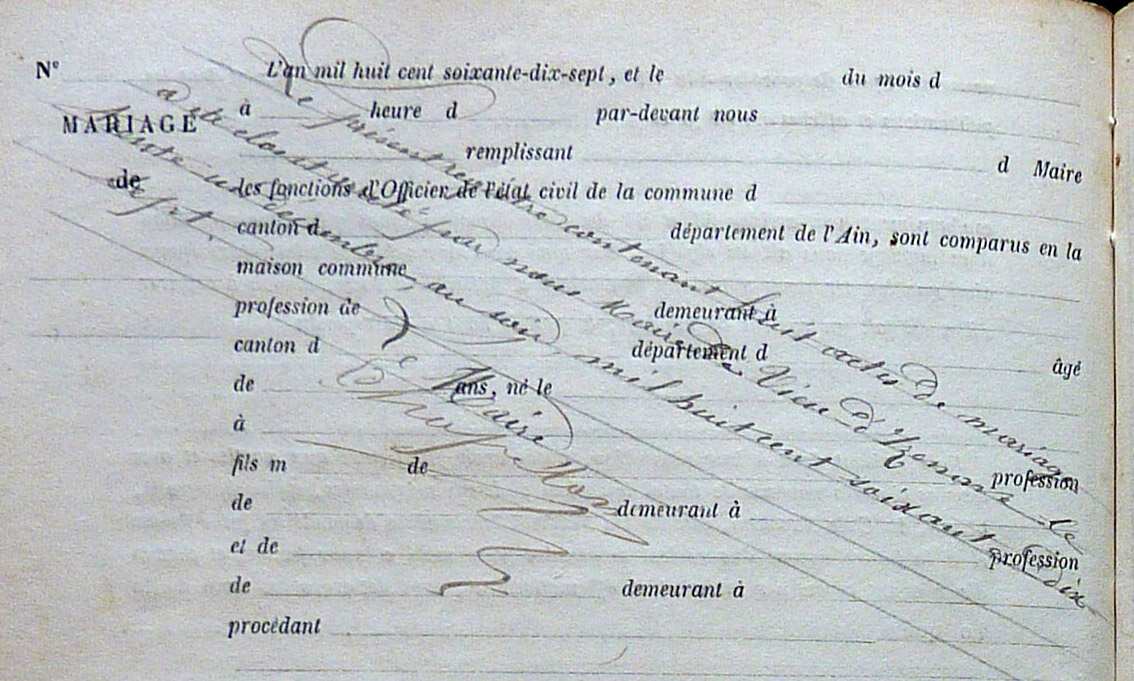 N° L'an mil huit cent soixante-dix-sept, et le du mois d
MARIAGE à heure d par-devant nous
remplissant d Maire
de les fonctions d'Officier de l'état civil de la commune d
canton d département de l'Ain, sont comparus en la
maison commune,
profession de demeurant à
canton d département d âgé
de ans, né le
à
fils m de profession
de demeurant à
et de profession
de demeurant à
procédant
Le présent registre contenant huit actes de mariage
a été clos et arrêté par nous Maire de Vieu d'Izenave le
trente un décembre au soir, mil huit cent soixante dix
sept.
Le Maire